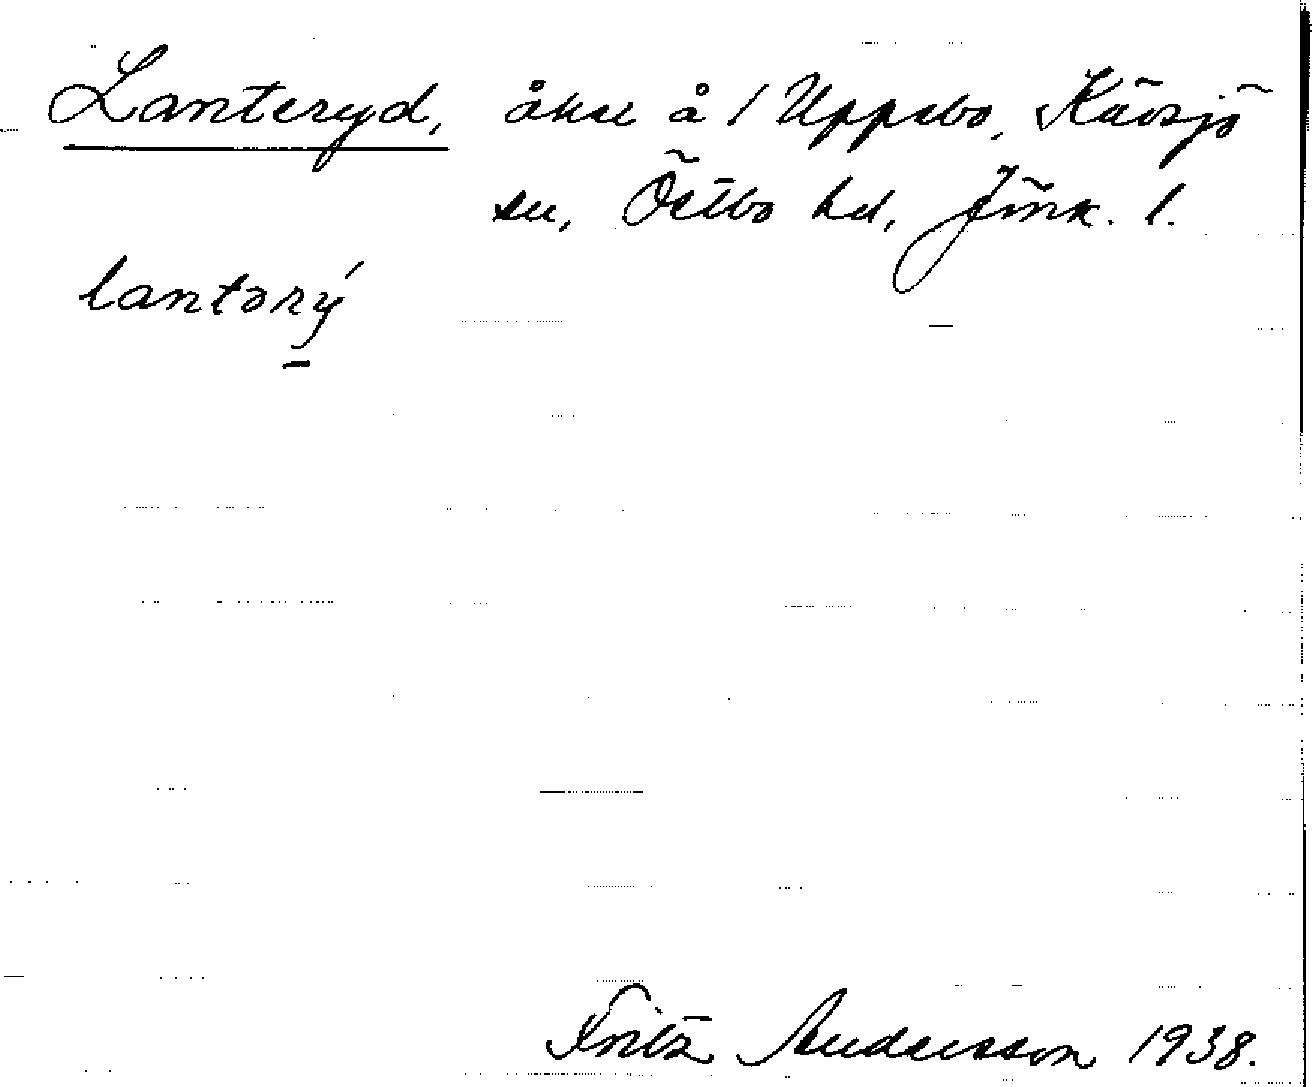 Lanteryd, åker å 1 Uppebo, Kävsjö
sn, Östbo hd, Jönk. l.
lantərý
Fritz Andersson 1938.